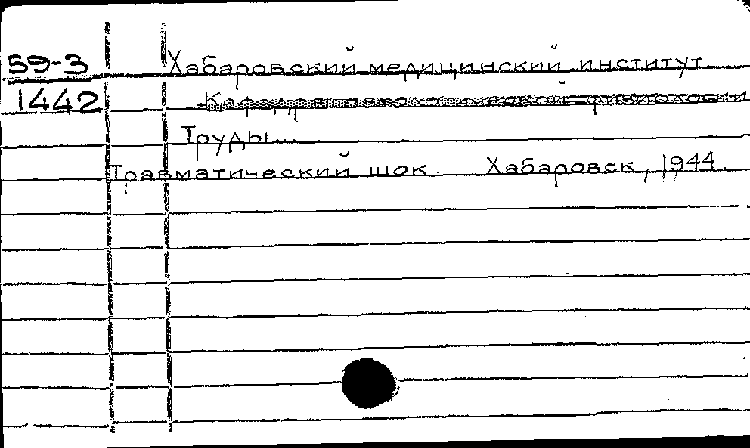 59-3 Хабаровский медицинский институт
1442 Кафедра
Труды
Травматический шок Хабаровск, 1944